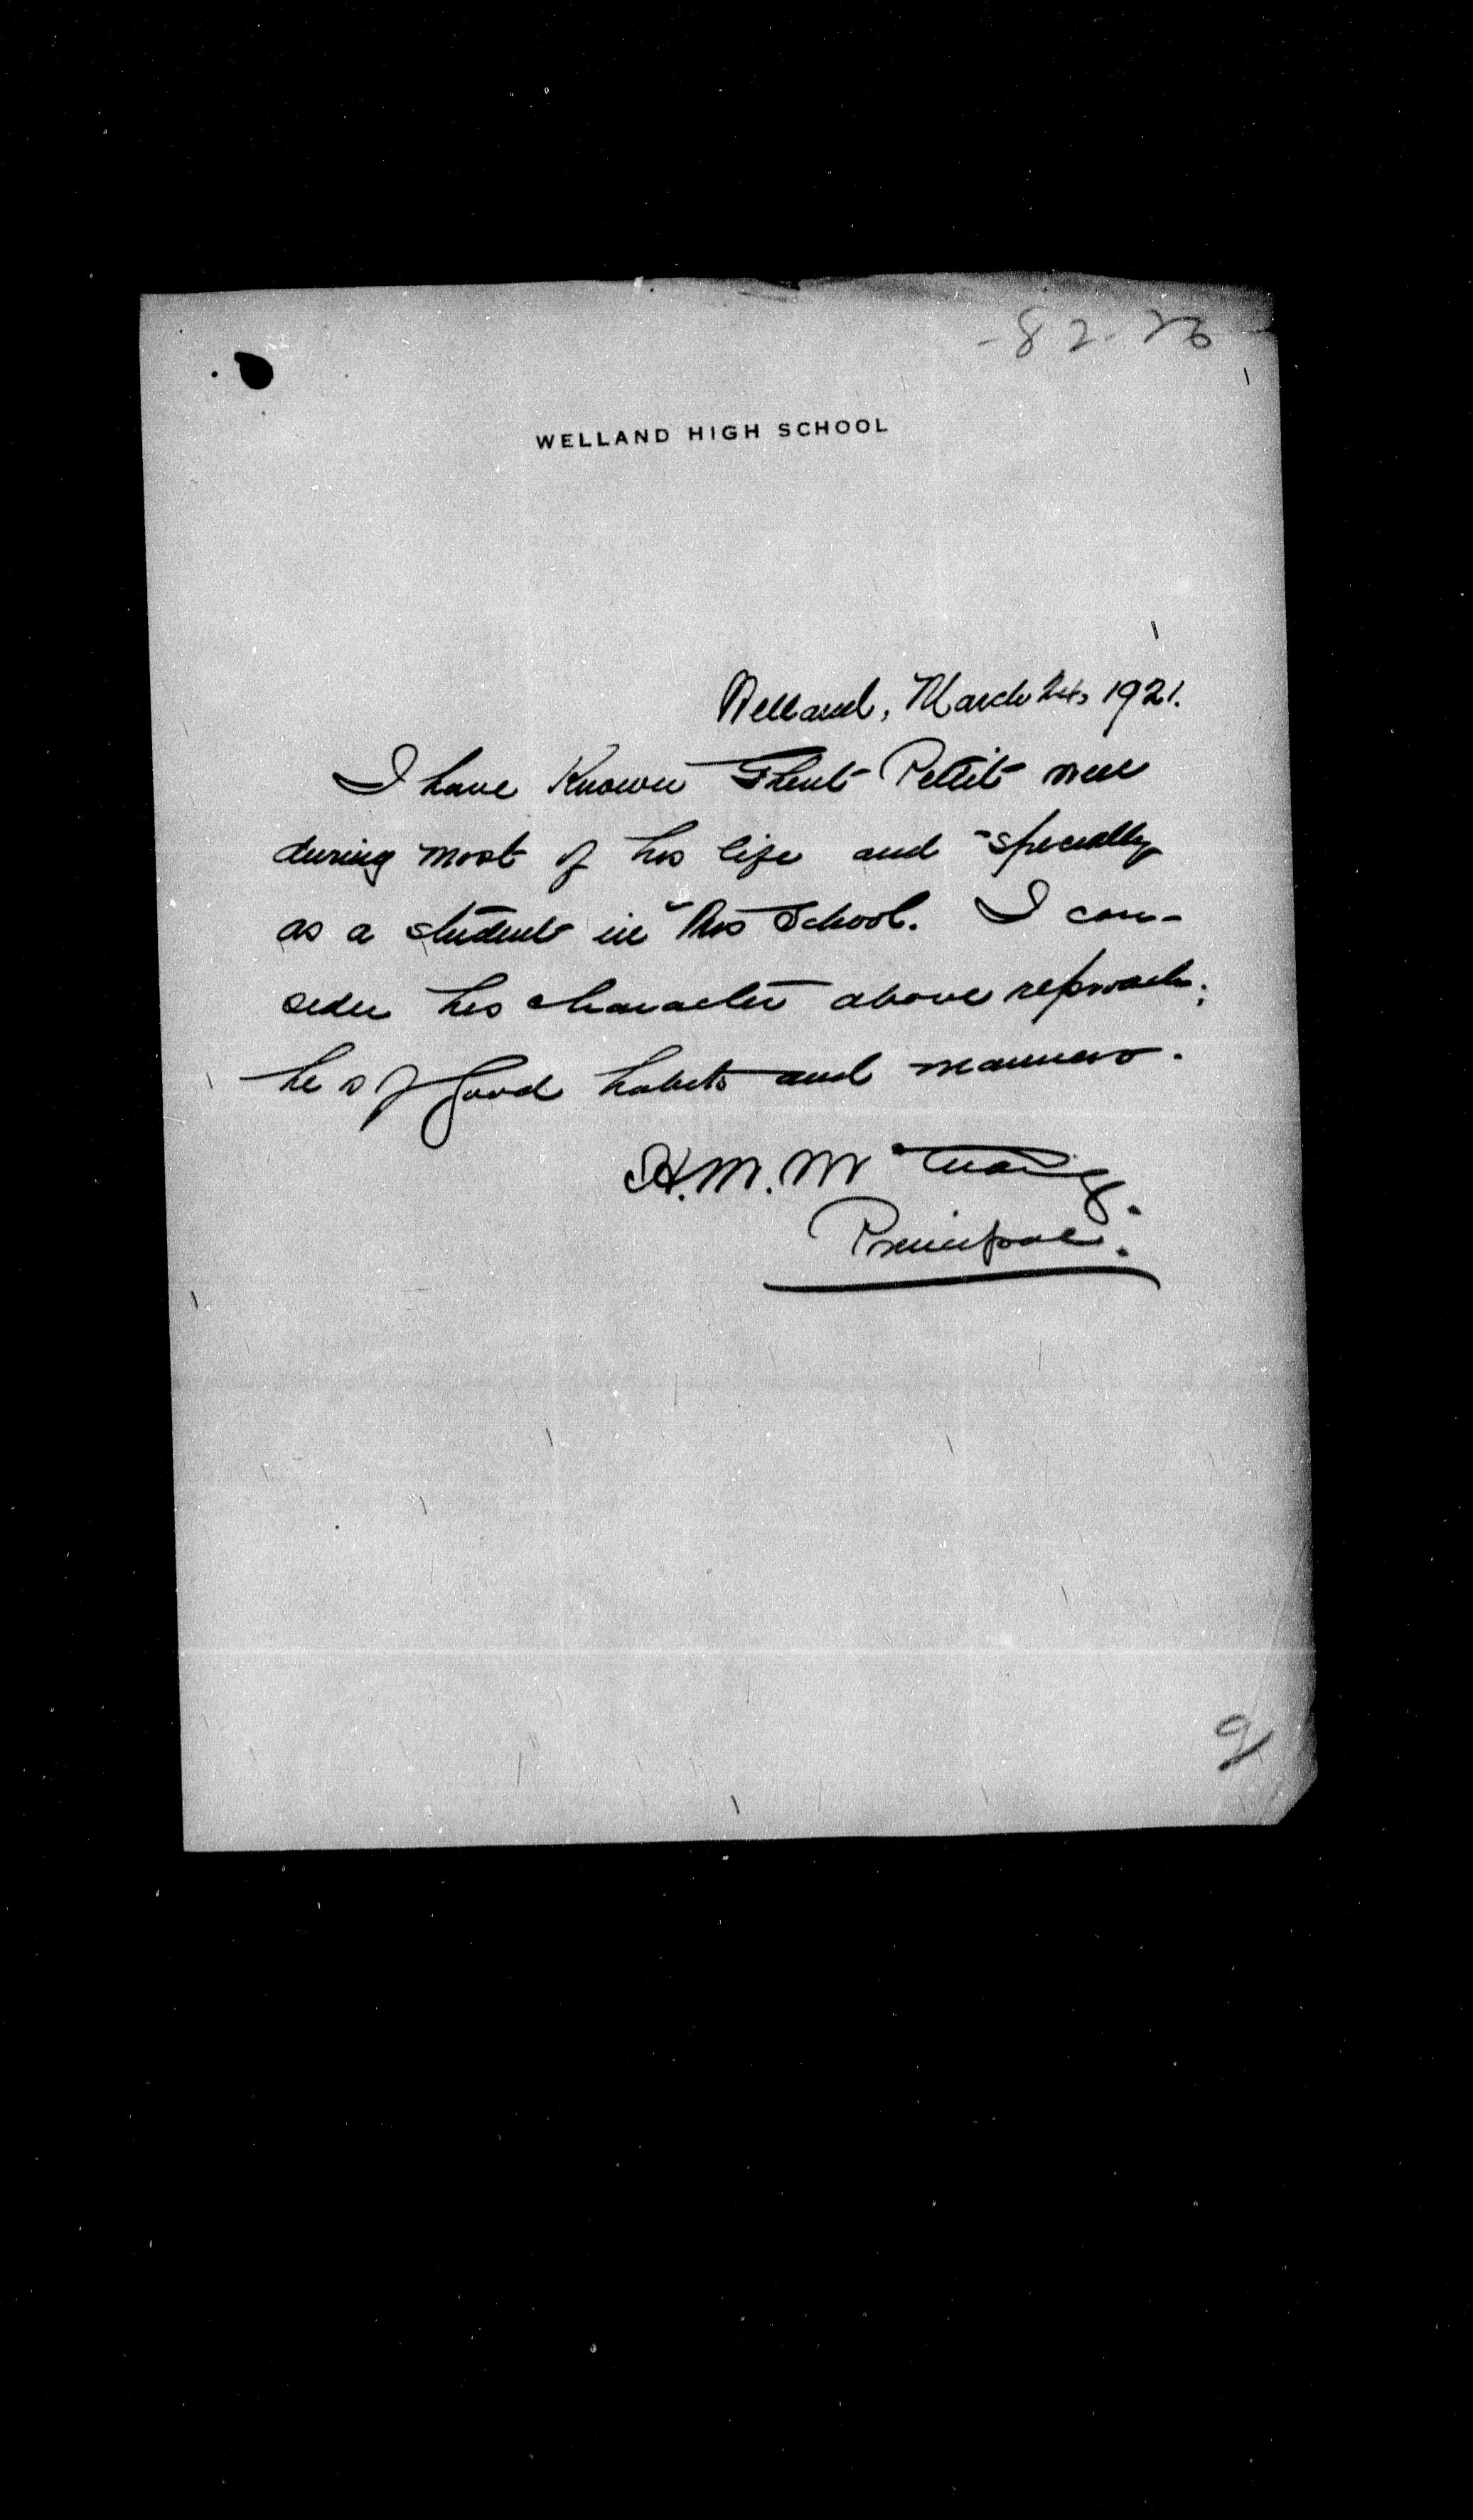 -82-23
WELLAND HIGH SCHOOL
Welland, March 24, 1921.
I have Known Ghent Pettit well
during most of his life and specially
as a student in this School. I con-
sider his character above reproach;
he is of good habits and manners.
H. M. Mc
Principal.
9